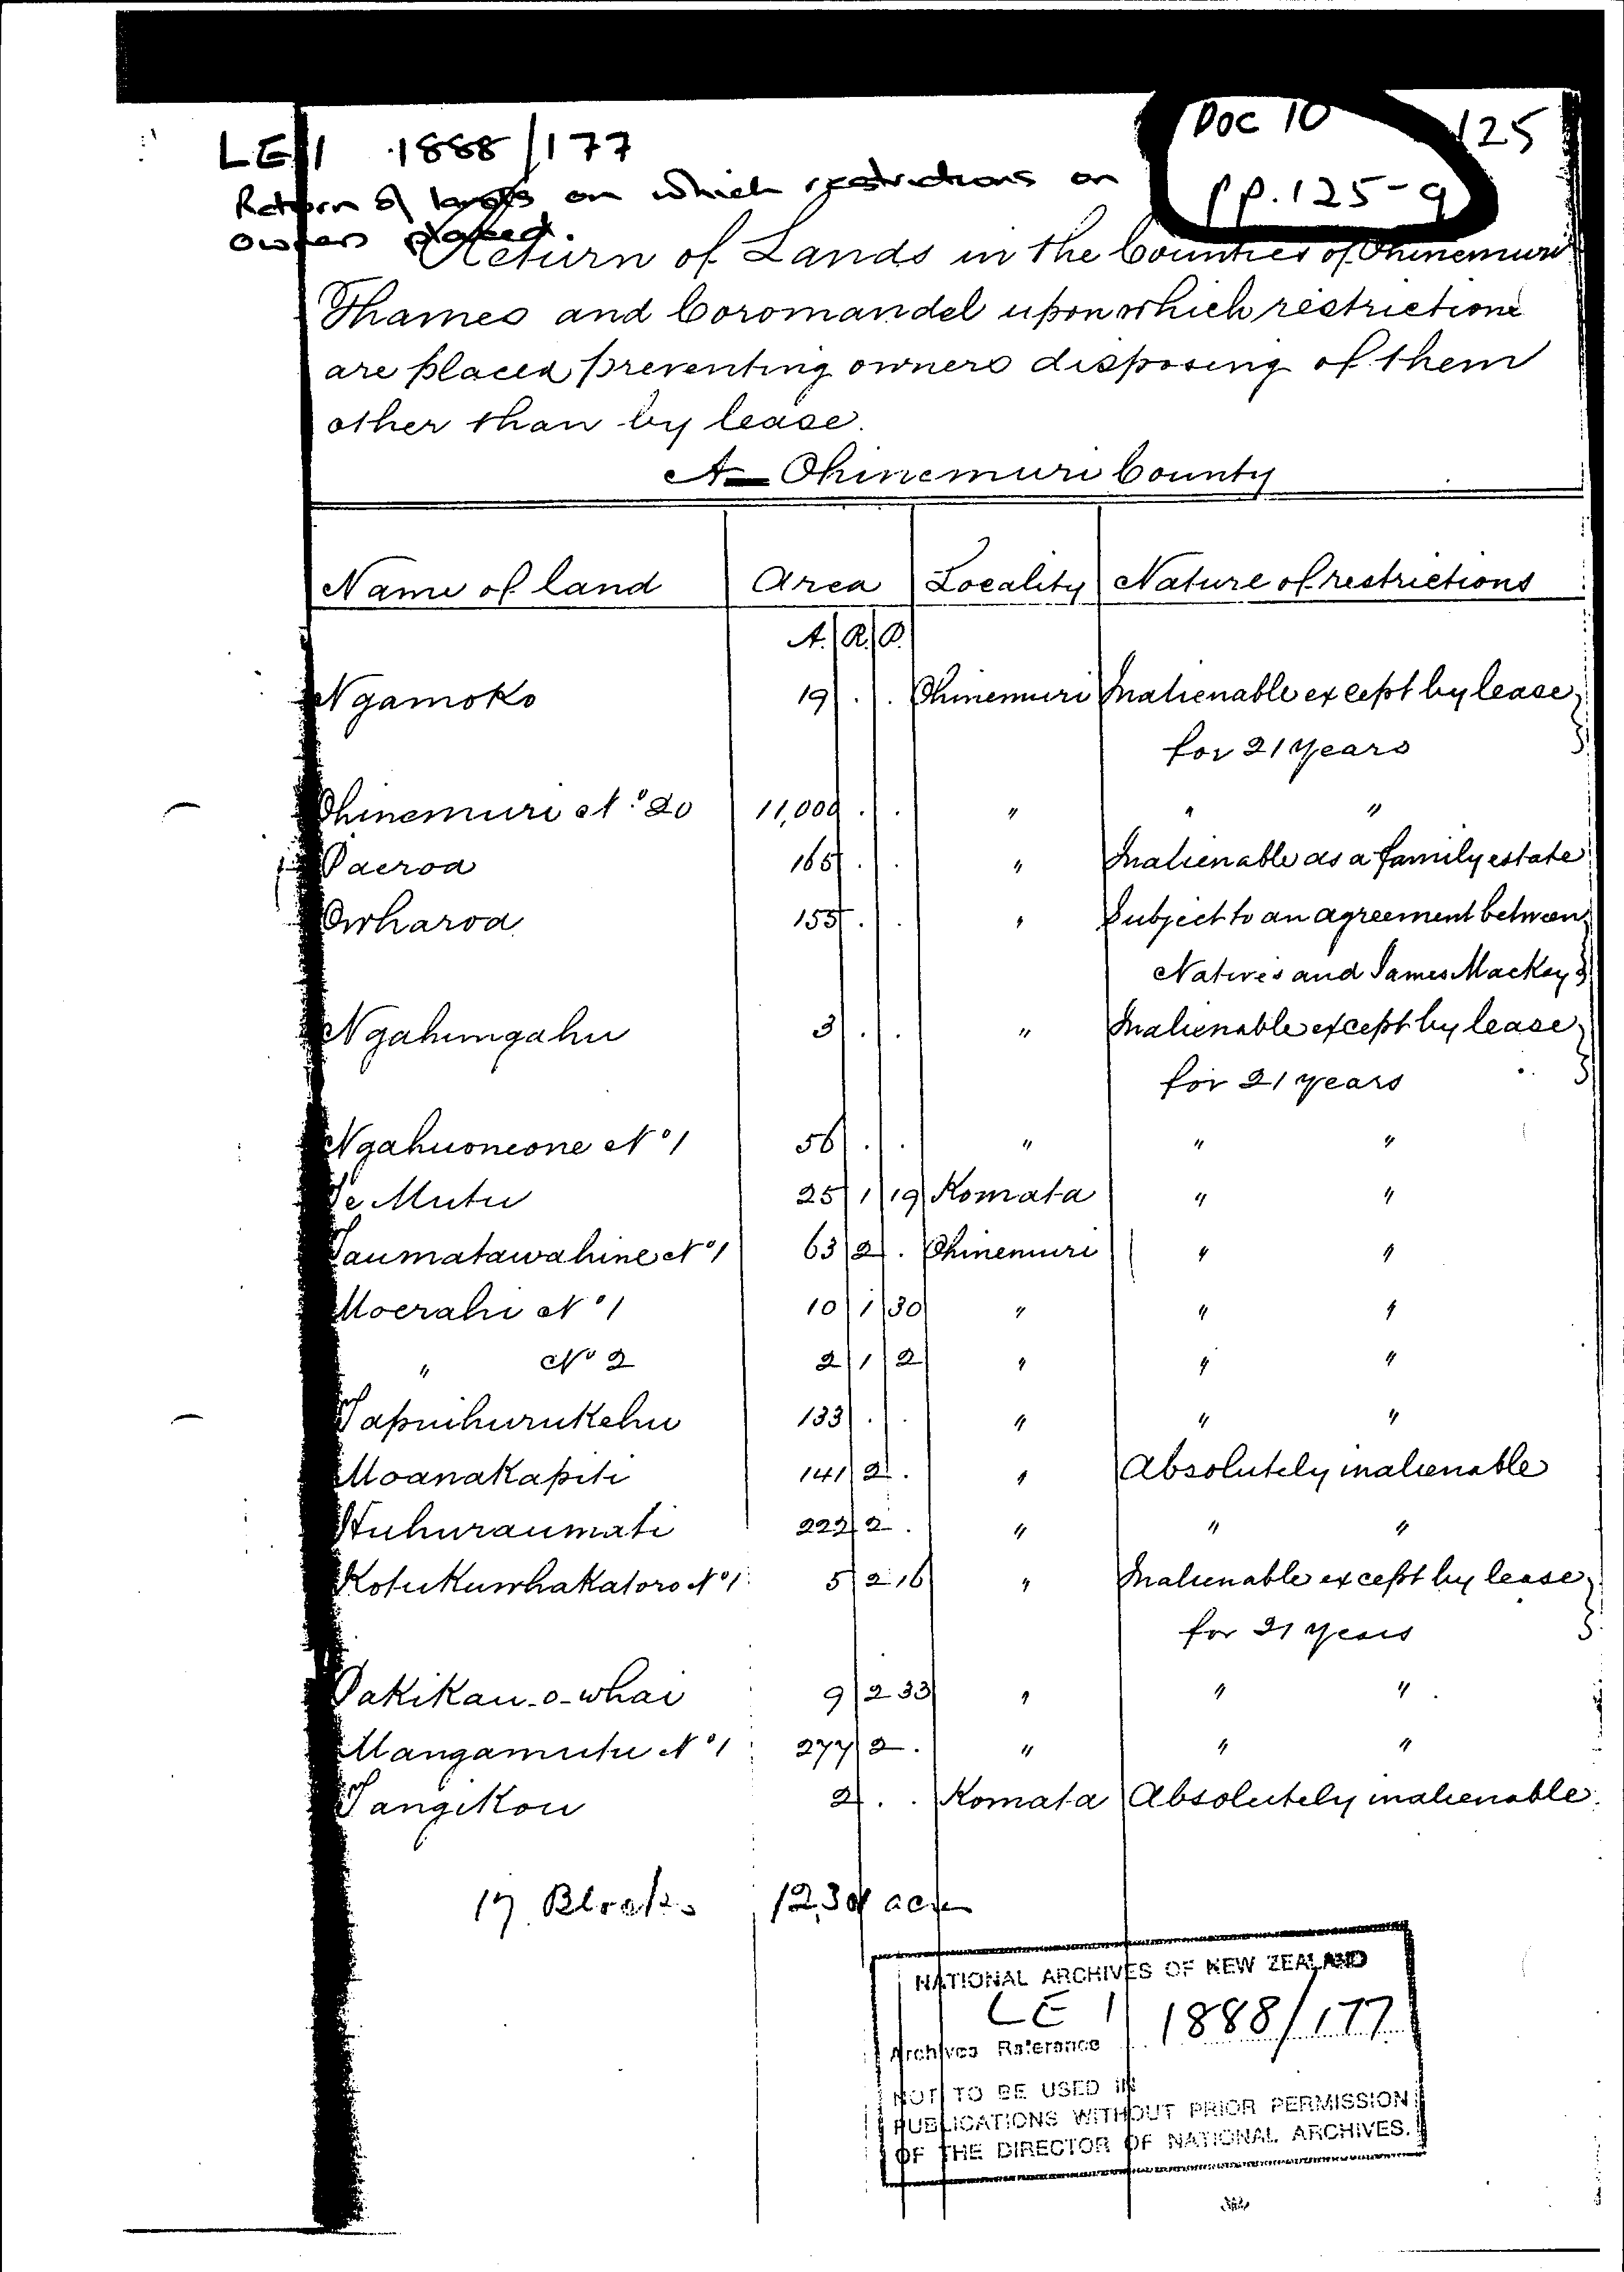 LE 1 1888/177
Doc 10
pp. 125-9
125
Return of lands on which restrictions on
owners placed.
Return of Lands in the Counties of Ohinemuri
Thames and Coromandel upon which restrictions
are placed preventing owners disposing of them
other than by lease.
A— Ohinemuri County
Name of land Area Locality Nature of restrictions
A. R. P.
Ngamoko 19 . . Ohinemuri Inalienable except by lease
for 21 years
Ohinemuri No 20 11,000 . . " " "
Paeroa 165 . . " Inalienable as a family estate
Owharoa 155 . . " Subject to an agreement between
Natives and James Mackay
Ngahungahu 3 . . " Inalienable except by lease
for 21 years
Ngahuoneone No 1 56 . . " " "
Te Mutu 25 1 19 Komata " "
Taumatawahine No 1 63 2 . Ohinemuri " "
Moerahi No 1 10 1 30 " " "
" No 2 2 1 2 " " "
Tapuihurukehu 133 . . " " "
Moanakapiti 141 2 . " Absolutely inalienable
Huhuraumati 222 2 . " " "
Kotukuwhakatoro No 1 5 2 16 " Inalienable except by lease
for 21 years
Pakikau-o-whai 9 2 33 " " "
Mangamutu No 1 277 2 . " " "
Tangikou 2 . . Komata Absolutely inalienable.
17 Blocks 12,301 acres
NATIONAL ARCHIVES OF NEW ZEALAND
LE 1 1888/177
Archives Reference
NOT TO BE USED IN
PUBLICATIONS WITHOUT PRIOR PERMISSION
OF THE DIRECTOR OF NATIONAL ARCHIVES.